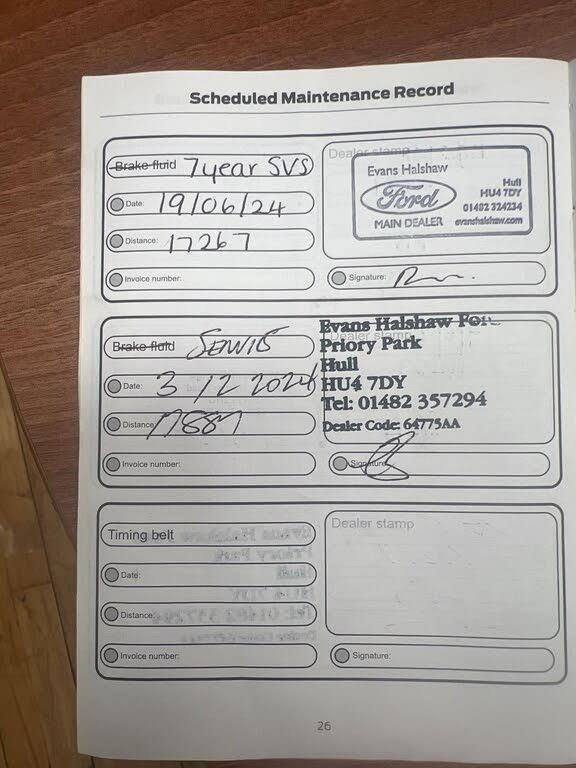 Scheduled Maintenance Record
Brake fluid 7 year SVS
Date: 19/06/24
Distance: 17267
Invoice number:
Dealer stamp
Evans Halshaw
Ford
MAIN DEALER
Hull
HU4 7DY
01482 324234
evanshalshaw.com
Signature:
Brake fluid
Date: 3/12 2024
Distance
Invoice number:
Dealer stamp
Evans Halshaw
Priory Park
Hull
HU4 7DY
Tel: 01482 357294
Dealer Code: 64775AA
Signature
Timing belt
Date:
Distance:
Invoice number:
Dealer stamp
Signature:
26